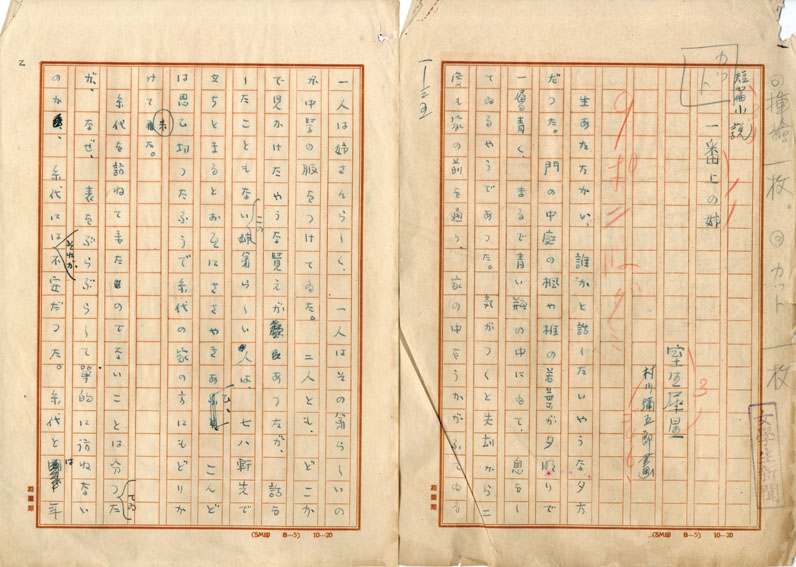 ◎挿絵一枚。◎カット一枚
カット
短篇小説
一番上の姉
室生犀星
村川彌五郎畫
女學生新聞
9ポ
生あたたかい、誰かと話したいやうな夕方
だつた。門の中庭の楓や椎の若葉が夕ばりで
一層青く、まるで青い瓶の中にゐて、息をし
てゐるやうであつた。気がつくと先刻から二
度も家の前を通り、家の中をうかがふてゐる
1―35
(SM印 B―5) 10―20
2
一人は姉さんらしく、一人はその弟らしいの
が中学の服をつけてゐた。二人とも、どこか
で見かけたやうな覚えがあつたが、話を
したこともないこの姉弟らしい二人は、七八軒先で
立ちとまると お互にささやきあひ、こんど
は思ひ切つたふうで糸代の家の方にもどりか
けて来た。
糸代を訪ねて来たのでないことは分つてゐた
が、なぜ、表をぶらぶらして単的に訪ねない
のか、それが糸代には不安だつた。糸代とは
年
(SM印 B―5) 10―20